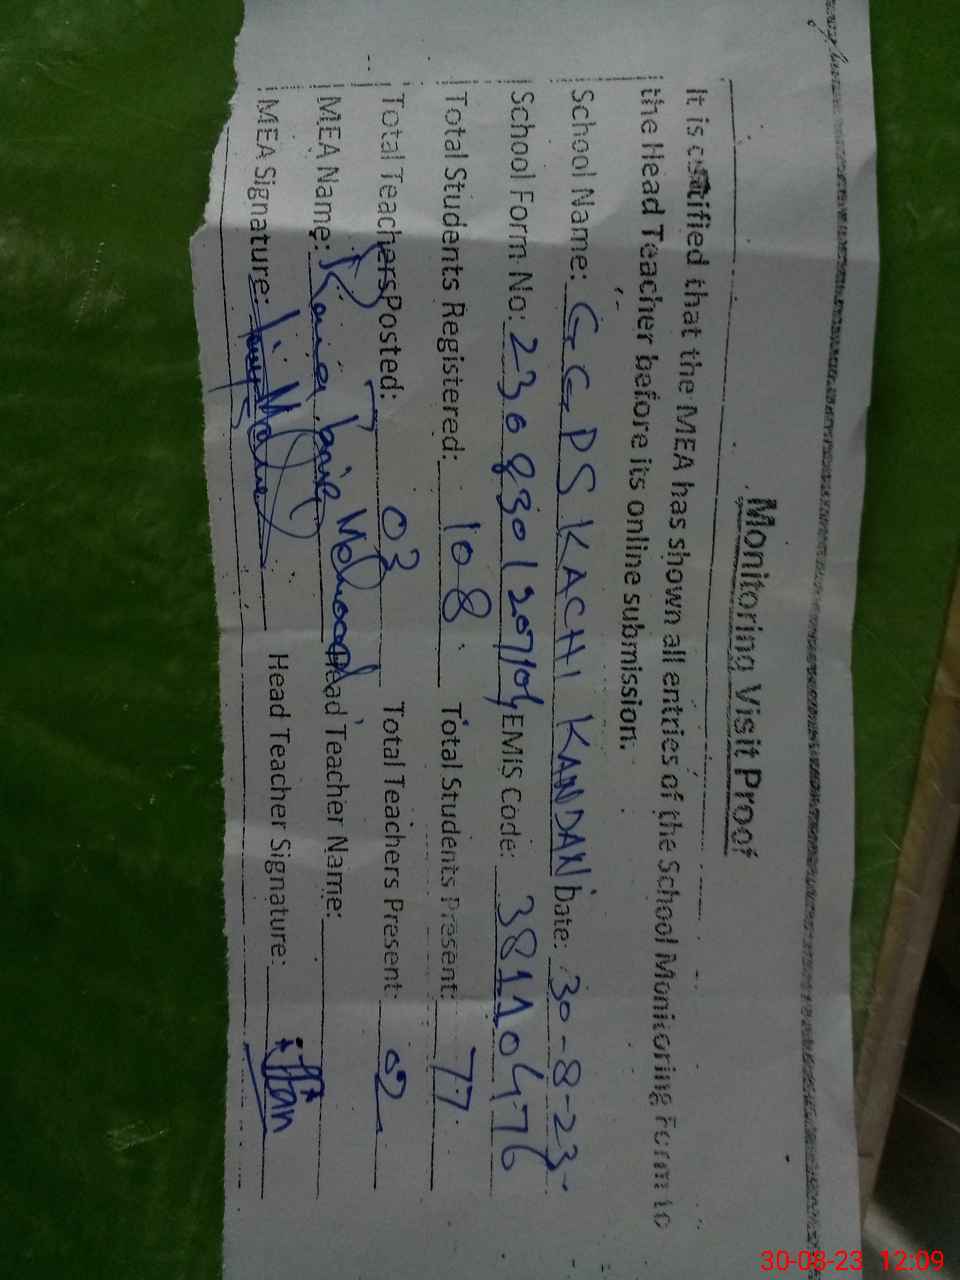 Monitoring Visit Proof
It is certified that the MEA has shown all entries of the School Monitoring Form to
the Head Teacher before its online submission.
School Name: G.G.PS KACHI KANDAN Date: 30-8-23
School Form No: EMIS Code: 38110476
Total Students Registered: 108 Total Students Present: 77
Total Teachers Posted: 03 Total Teachers Present: 02
MEA Name: Mehmood Head Teacher Name:
MEA Signature: Head Teacher Signature:
30-08-23 12:09